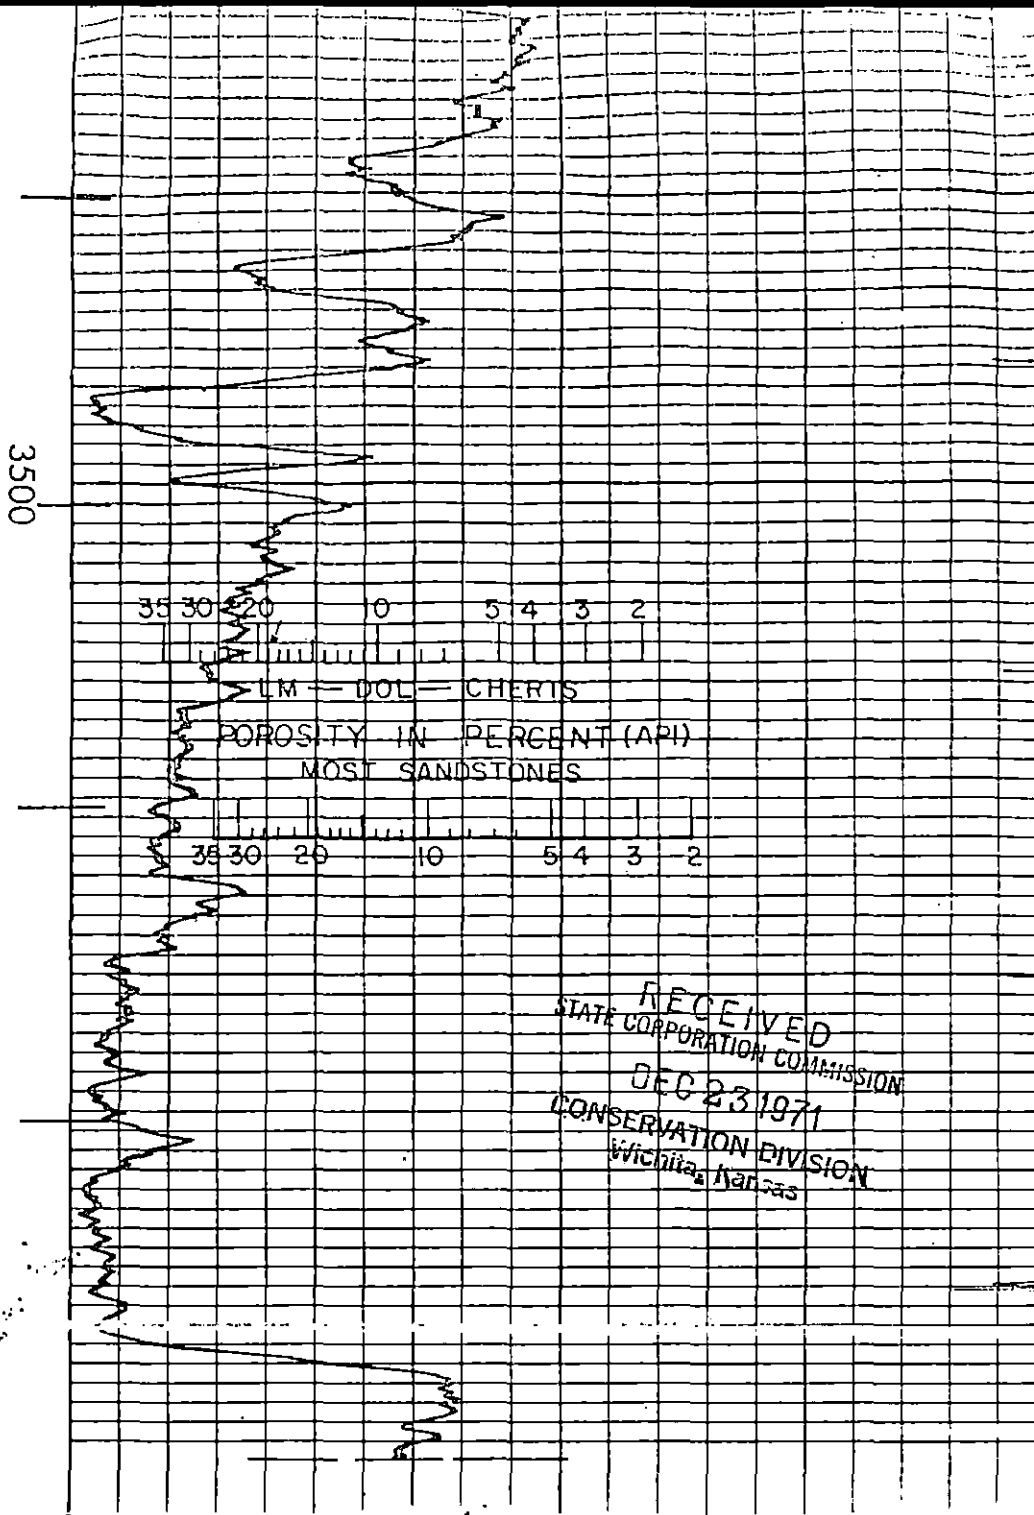 3500
35 30 20 10 5 4 3 2
LM — DOL — CHERTS
POROSITY IN PERCENT (API)
MOST SANDSTONES
35 30 20 10 5 4 3 2
RECEIVED
STATE CORPORATION COMMISSION
DEC 23 1971
CONSERVATION DIVISION
Wichita, Kansas